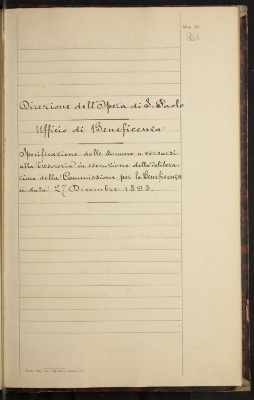 Direzione dell'Opera di S. Paolo
Ufficio di Beneficenza
Specificazione delle somme a versarsi
alla Tesoreria in esecuzione della delibera-
zione della Commissione per la Beneficenza
in data 27 Dicembre 1893.